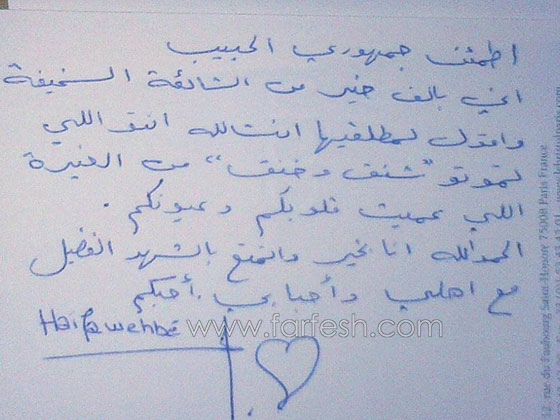 اطمئن جمهوري الحبيب
اني بالف خير من الشائعة السخيفة
واقول لمطلقيها انشالله انتو اللي
تموتو "شنق وخنق" من الغيرة
اللي عميت قلوبكم وعيونكم.
الحمدالله انا بخير واتمتع بالشهر الفضيل
مع اهلي وأحبابي. أحبكم
Haifa wehbe
www.farfesh.com
rue du Faubourg Saint-Honoré 75008 Paris France